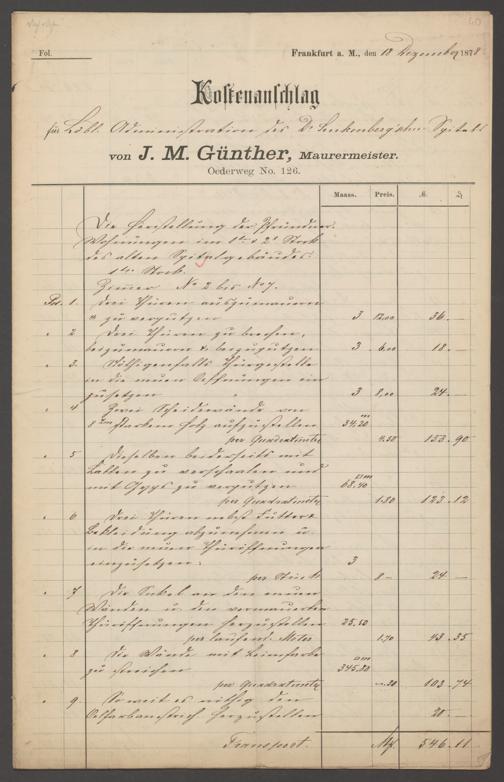 Fol. Frankfurt a. M., den 18 Dezember 1878
Kostenanschlag
für Löbl. Administration des Dr Senkenberg'schen Spitals
von J. M. Günther, Maurermeister.
Oederweg No. 126.
Maass. Preis. M. ₰
Die Herstellung der Pfründner
Wohnungen im 1ten & 2t Stock
des alten Spitalgebäudes.
1ter Stock.
Zimmer No 2 bis No 7.
Pos. 1. Drei Thüren auszumauern
& zu verputzen 3 12,00 36 —
" 2 Drei Thüren zu brechen,
beizumauern & beizuputzen 3 6,00 18 —
" 3. Nöthigenfalls Thürgestelle
in die neuen Oeffnungen ein
zusetzen 3 8,00 24 —
" 4 Zwei Scheidewände von
starkem Holz aufzustellen 34,20
per Quadratmeter 4.50 153 90
" 5 Dieselben beiderseits mit
Latten zu verschaalen und
mit Gyps zu verputzen 68,40
per Quadratmeter 1.80 123 12
" 6 Drei Thüren nebst Futter &
Bekleidung abzunehmen u.
in die neuen Thüröffnungen
einzusetzen. 3
per Stück 8 — 24 —
" 7 Die Sockel an den neuen
Wänden u. den vermauerten
Thüröffnungen herzustellen 25,50
per laufend. Meter 1.70 43 35
" 8 Die Wände mit Leimfarbe
zu streichen 345,80
per Quadratmeter —.30 103 74
" 9 Soweit es nöthig den
Oelfarbanstrich herzustellen 20 —
Transport. Mk. 546 11